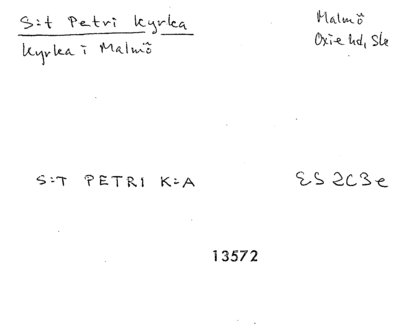 S:t Petri Kyrka
Kyrka i Malmö
Malmö
Oxie hd, Sk
S:T PETRI K:A
ES 2C3e
13572